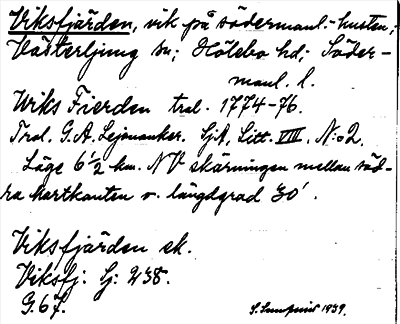 Viksfjärden, vik på södermanl.-kusten,
Västerljung sn; Hölebo hd; Söder-
manl. l.
Wiks Fierden tral. 1774-76.
Tral. G.A. Lejonanker. SjA, Litt. VIII, N:o 2.
Läge 6 1/2 km. NV skärningen mellan söd-
ra kartkanten o. längdgrad 30'.
Viksfjärden ek.
Viksfj: Sj: 238.
G. 67.
1939.